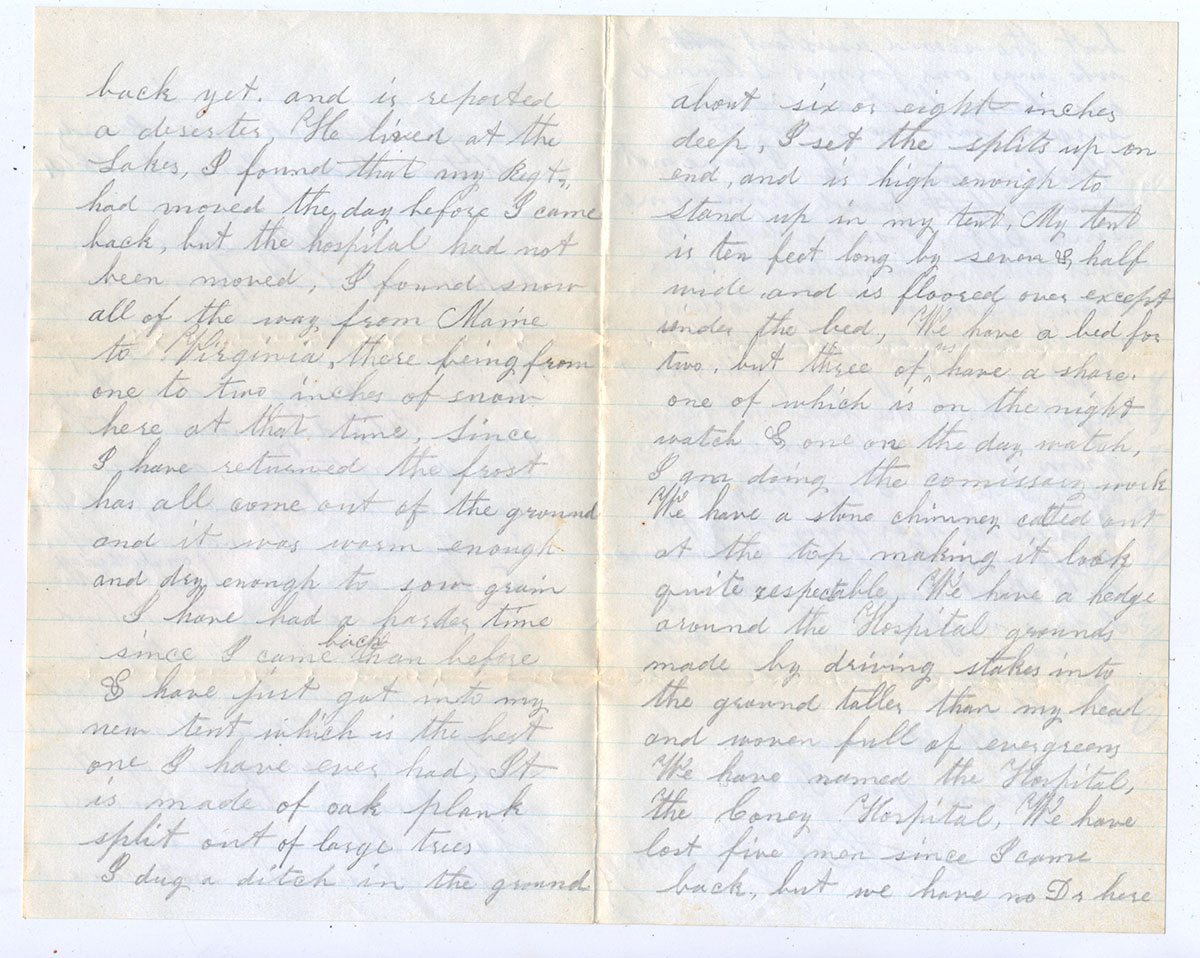 back yet. and is reported
a deserter, He lived at the
Lakes, I found that my Regt,
had moved the day before I came
back, but the hospital had not
been moved, I found snow
all of the way from Maine
to Virginia, there being from
one to two inches of snow
here at that time, Since
I have returned the frost
has all come out of the ground
and it was warm enough
and dry enough to sow grain
I have had a harder time
since I came back than before
& have just got into my
new tent which is the best
one I have ever had, It
is made of oak plank
split out of large trees
I dug a ditch in the ground
about six or eight inches
deep, I set the splits up on
end, and is high enough to
stand up in my tent, My tent
is ten feet long by seven & half
wide and is floored over except
under the bed, We have a bed for
two, but three of us have a share.
one of which is on the night
watch & one on the day watch,
I am doing the comissary work
We have a stone chimney catted out
at the top making it look
quite respectible, We have a hedge
around the Hospital grounds
made by driving stakes into
the ground taller than my head
and woven full of evergreens
We have named the Hospital,
the Coney Hospital, We have
lost five men since I came
back, but we have no Dr here